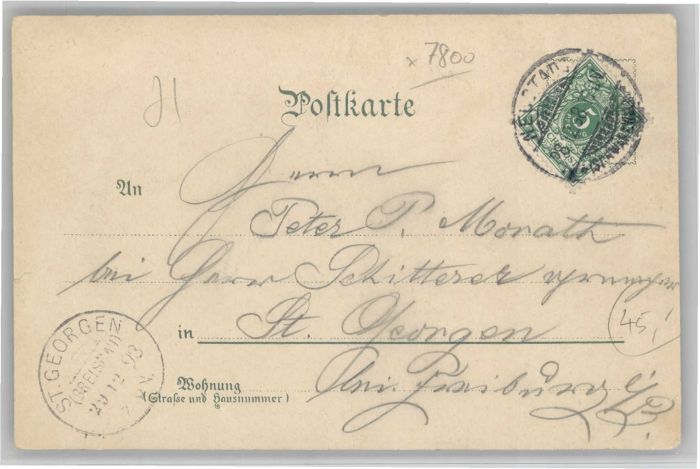 x 7800
Postkarte
5
An Herrn
Peter P. Morath
bei Herrn Schitterer
in St. Georgen
45,-
Wohnung
(Straße und Hausnummer)
bei Freiburg i/B.
ST. GEORGEN
(BREISGAU)
20 12 98